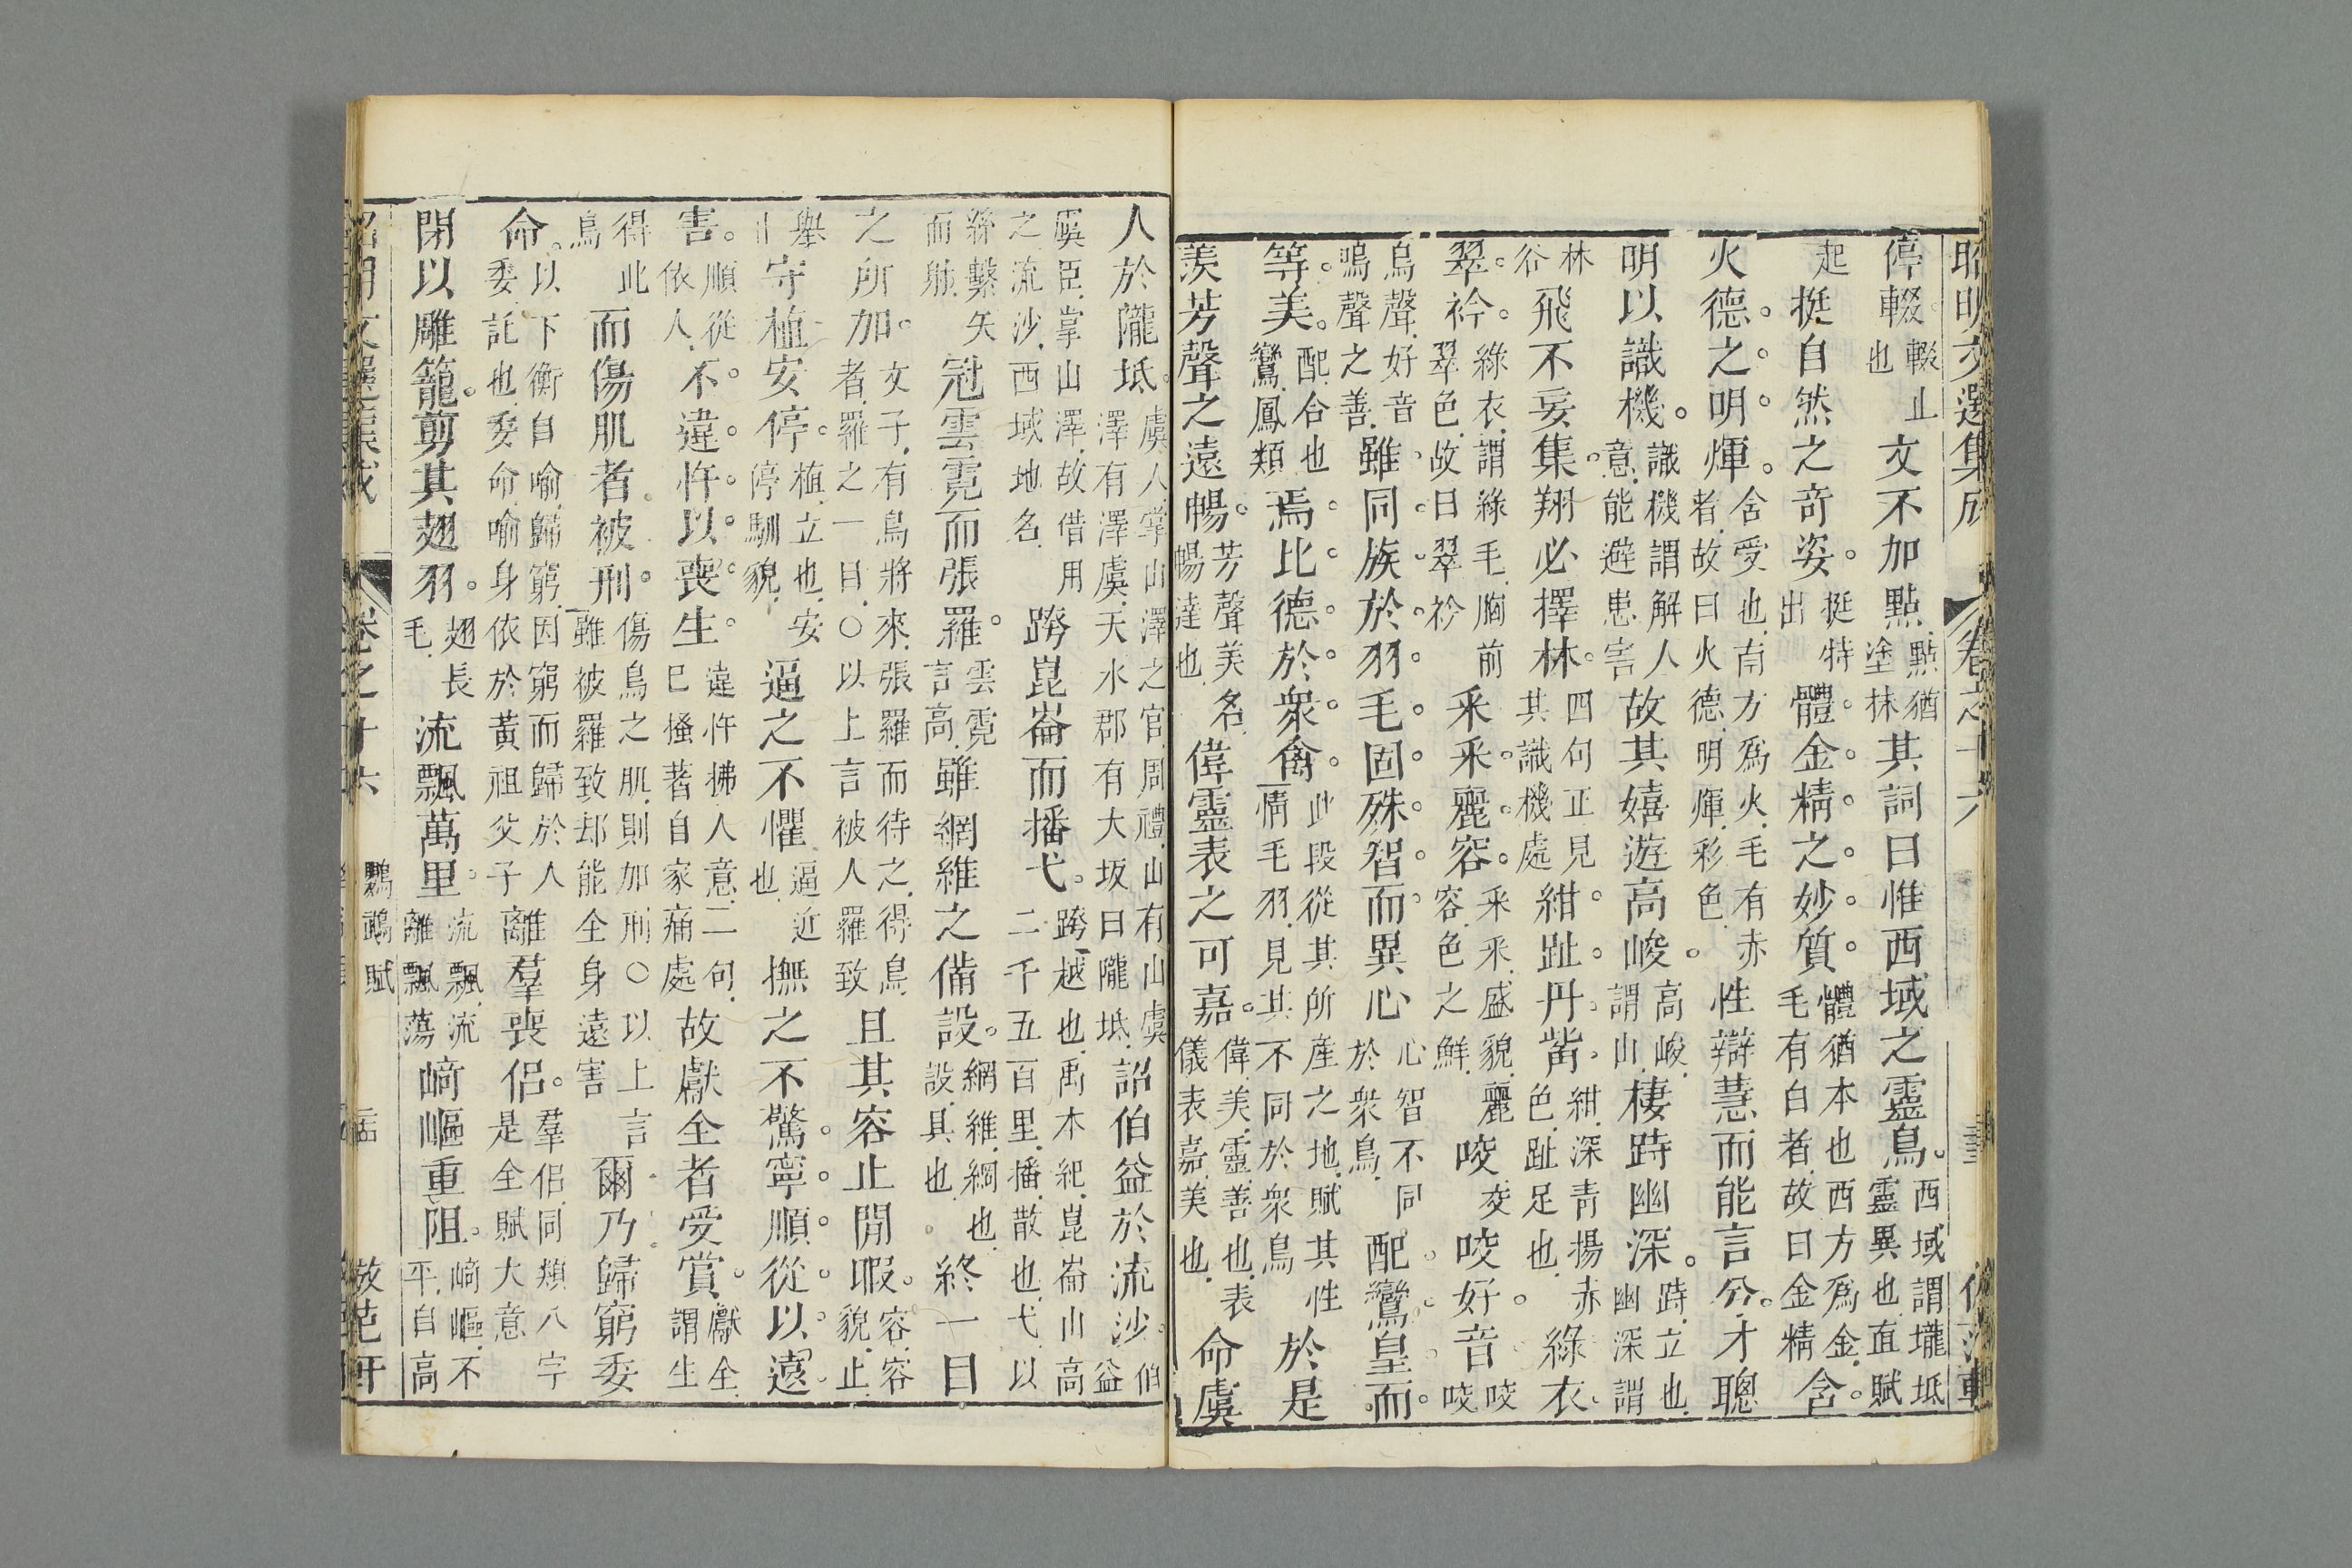 昭明文選集成　卷之十六
停輟。輟止也文不加點。點猶塗抹其詞曰惟西域之靈鳥。西域謂壠坻靈異也直賦
起挺自然之奇姿。挺特出體金精之妙質。體猶本也西方爲金毛有白者故曰金精含
火德之明煇。含受也南方爲火毛有赤者故曰火德明煇彩色性辯慧而能言兮。才聰
明以識機。識機謂解人意能避患害故其嬉遊高峻。高峻謂山棲跱幽深。跱立也幽深謂
林谷飛不妄集翔必擇林。四句正見其識機處紺趾丹觜。紺深青揚赤色趾足也綠衣
翠衿。綠衣謂綠毛胸前翠色故曰翠衿采采麗容。采采盛貌麗容色之鮮咬交咬好音。咬咬
鳥聲好音鳴聲之善雖同族於羽毛固殊智而異心心智不同於衆鳥配鸞皇而
等美。配合也鸞鳳類焉比德於衆禽。此段從其所產之地賦其性情毛羽見其不同於衆鳥於是
羨芳聲之遠暢。芳聲美名暢達也偉靈表之可嘉。偉美靈善也表儀表嘉美也命虞
人於隴坻。虞人掌山澤之官周禮山有山虞澤有澤虞天水郡有大坂曰隴坻詔伯益於流沙。伯益
虞臣掌山澤故借用之流沙西域地名跨崑崙而播弋。跨越也禹本紀崑崙山高二千五百里播散也弋以
絲繫矢而射冠雲霓而張羅。雲霓言高雖網維之備設。網維綱也設具也終一目
之所加。文子有鳥將來張羅而待之得鳥者羅之一目○以上言被人羅致且其容止閒暇。容容貌止
舉止守植安停。植立也安停馴貌逼之不懼逼近也撫之不驚。寧順從以遠
害。順從依人不違忤以喪生。違忤拂人意二句已搔著自家痛處故獻全者受賞。獻全謂生
得此鳥而傷肌者被刑。傷鳥之肌則加刑○以上言雖被羅致却能全身遠害爾乃歸窮委
命。以下衡自喻歸窮因窮而歸於人委託也委命喻身依於黃祖父子離羣喪侶。羣侶同類八字是全賦大意
閉以雕籠。剪其翅羽。翅長毛流飄萬里。流飄流離飄蕩崎嶇重阻。崎嶇不平自高
昭明文選集成　卷之十六　鸚鵡賦